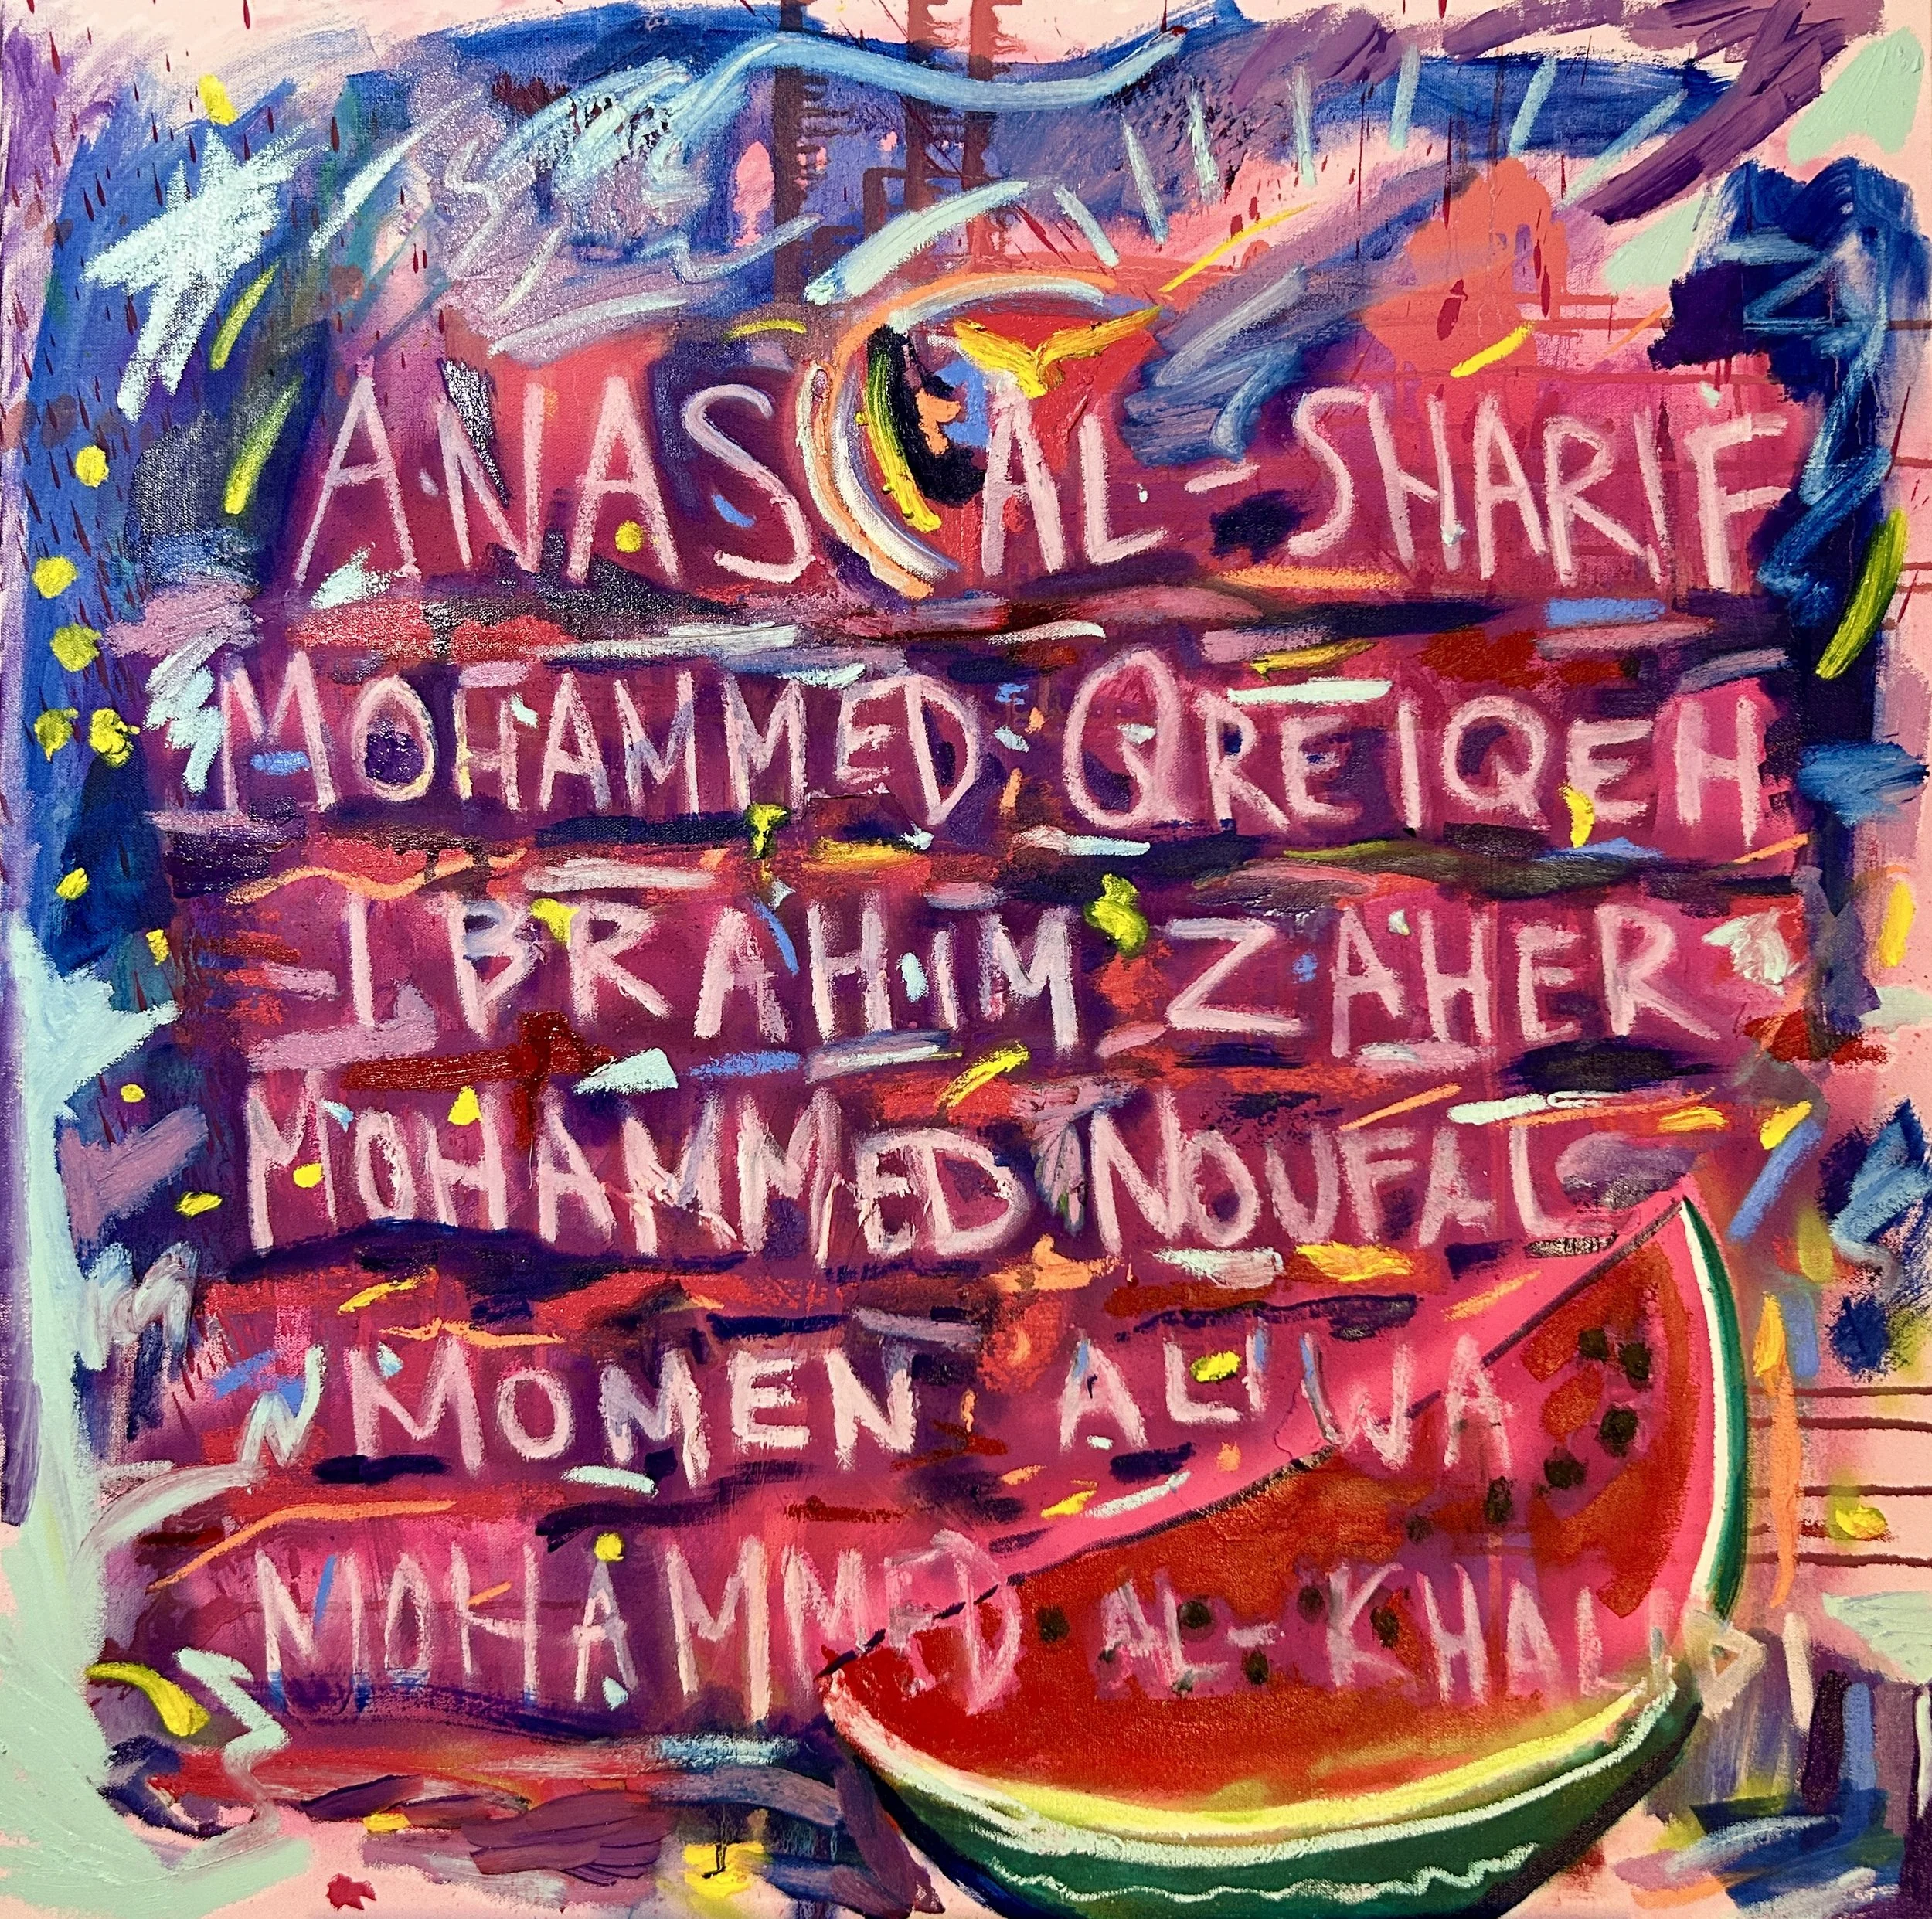 ANAS AL-SHARIF
MOHAMMED QREIQEH
IBRAHIM ZAHER
MOHAMMED NOUFAL
MOMEN ALIWA
MOHAMMED AL-KHALIDI